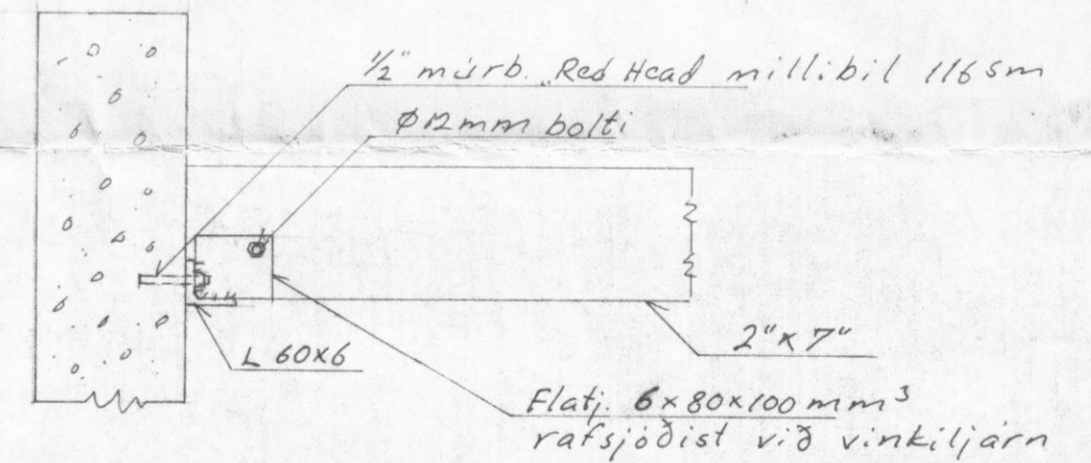 1/2" múrb. „Red Head millibil 116 sm
ø12mm bolti
2" x 7"
L 60x6
Flatj. 6x80x100 mm³
rafsjóðist við vinkiljárn